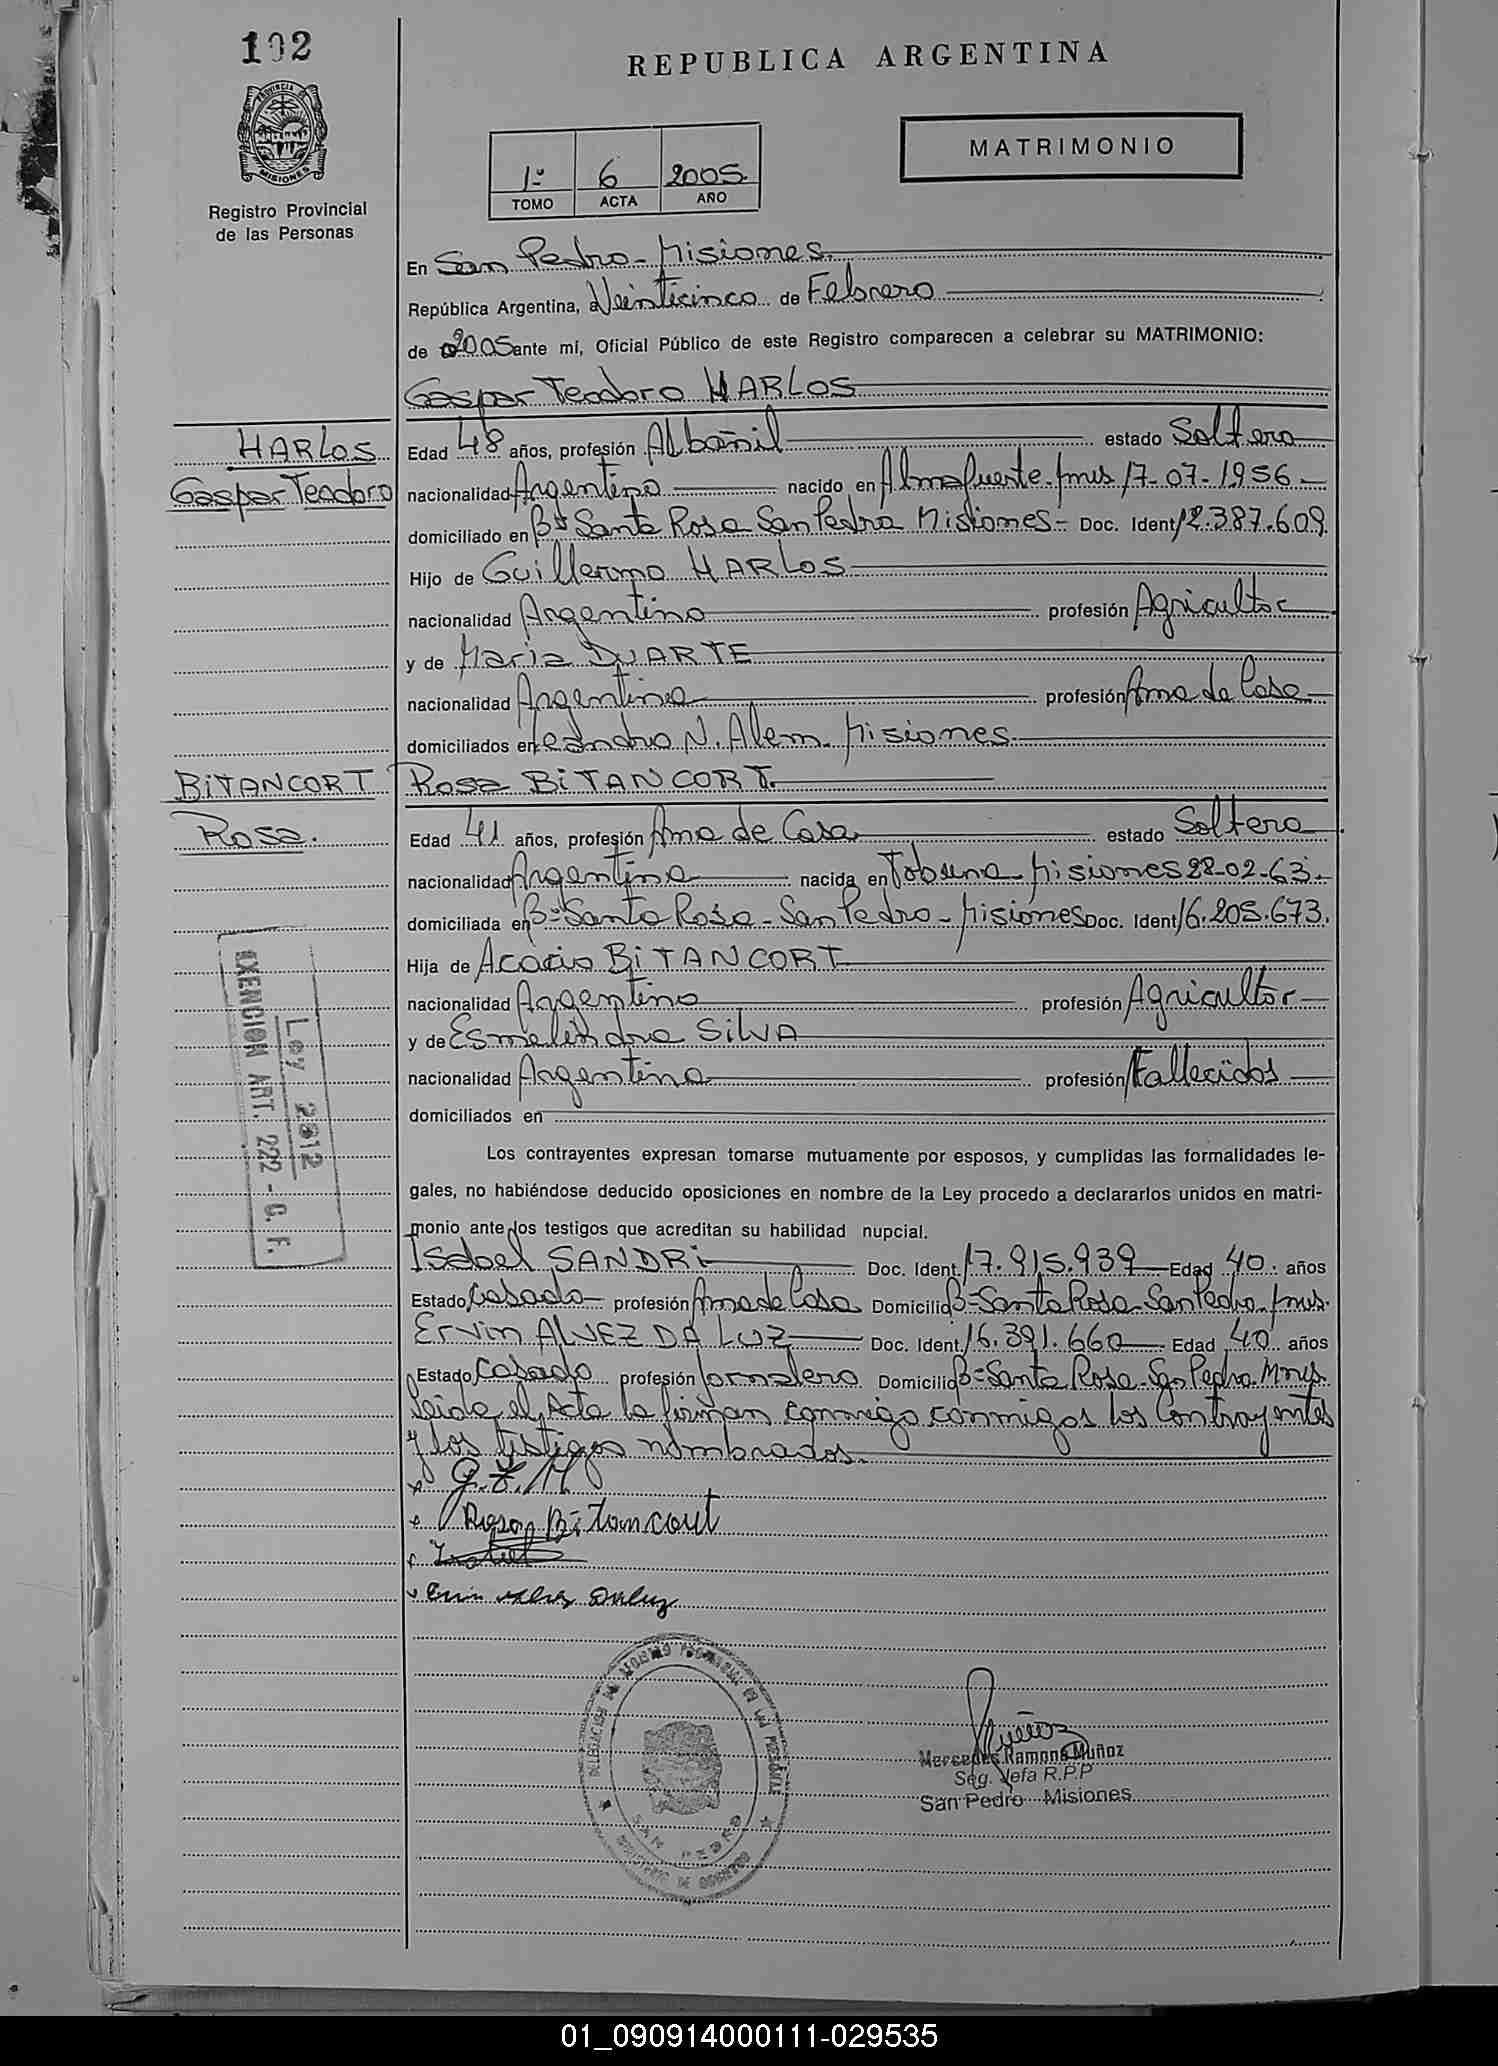 102
REPUBLICA ARGENTINA
MATRIMONIO
PROVINCIA DE
MISIONES
Registro Provincial
de las Personas
1º 6 2005
TOMO ACTA AÑO
En San Pedro - Misiones.
República Argentina, a Veinticinco de Febrero
de 2005 ante mí, Oficial Público de este Registro comparecen a celebrar su MATRIMONIO:
Gaspar Teodoro HARLOS
HARLOS
Gaspar Teodoro
Edad 48 años, profesión Albañil estado Soltero
nacionalidad Argentino nacido en Almafuerte - Mnes 17-07-1956 -
domiciliado en Bº Santa Rosa San Pedro Misiones - Doc. Ident 12.387.609.
Hijo de Guillermo HARLOS
nacionalidad Argentino profesión Agricultor
y de Maria DUARTE
nacionalidad Argentina profesión Ama de Casa
domiciliados en Leandro N. Alem - Misiones.
BiTANCORT
Rosa.
Rosa BiTANCORT.
Edad 41 años, profesión Ama de Casa estado Soltera
nacionalidad Argentina nacida en Tobuna - Misiones 28-02-63.
domiciliada en Bº Santa Rosa - San Pedro - Misiones Doc. Ident 16.205.673.
Hija de Acacio BiTANCORT
nacionalidad Argentino profesión Agricultor
y de Esmelindra SiLVA
nacionalidad Argentina profesión Fallecidos
domiciliados en
EXENCION ART. 222 - C. F.
Ley 2812
Los contrayentes expresan tomarse mutuamente por esposos, y cumplidas las formalidades le-
gales, no habiéndose deducido oposiciones en nombre de la Ley procedo a declararlos unidos en matri-
monio ante los testigos que acreditan su habilidad nupcial.
Isabel SANDRi Doc. Ident. 17.915.939 Edad 40. años
Estado Casada profesión Ama de Casa Domicilio Bº Santa Rosa - San Pedro - Mnes.
Ervin ALVEZ DA LUZ Doc. Ident. 16.391.660 Edad 40 años
Estado Casado profesión Jornalero Domicilio Bº Santa Rosa - San Pedro - Mnes.
leida el Acta la firman conmigo conmigos los Contrayentes
y los testigos nombrados.
G.T.H
Rosa Bitancout
Isabel
DELEGACION DEL REGISTRO PROVINCIAL DE LAS PERSONAS
SAN PEDRO
MINISTERIO DE GOBIERNO
Mercedes Ramona Muñoz
Seg. Jefa R.P.P
San Pedro - Misiones
01_090914000111-029535